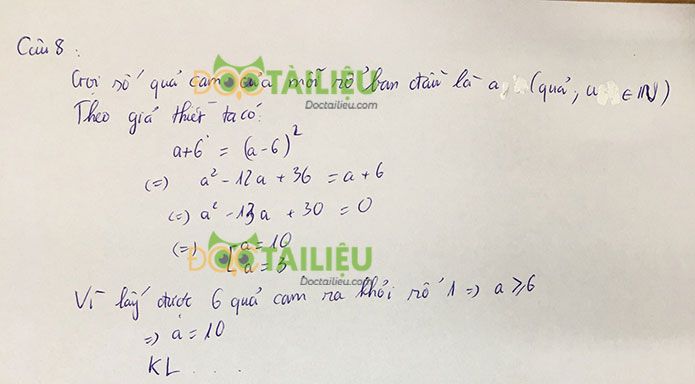 Câu 8:
Gọi số quả cam của mỗi rổ ban đầu là a (quả; a ∈ N)
Theo giả thiết ta có:
a+6 = (a-6)²
(=) a² - 12a + 36 = a + 6
(=) a² - 13a + 30 = 0
(=) [ a = 10
[ a = 3
Vì lấy được 6 quả cam ra khỏi rổ 1 => a ≥ 6
=> a = 10
KL . . . .
ĐỌCTÀILIỆU
Doctailieu.com
ĐỌCTÀILIỆU
Doctailieu.com